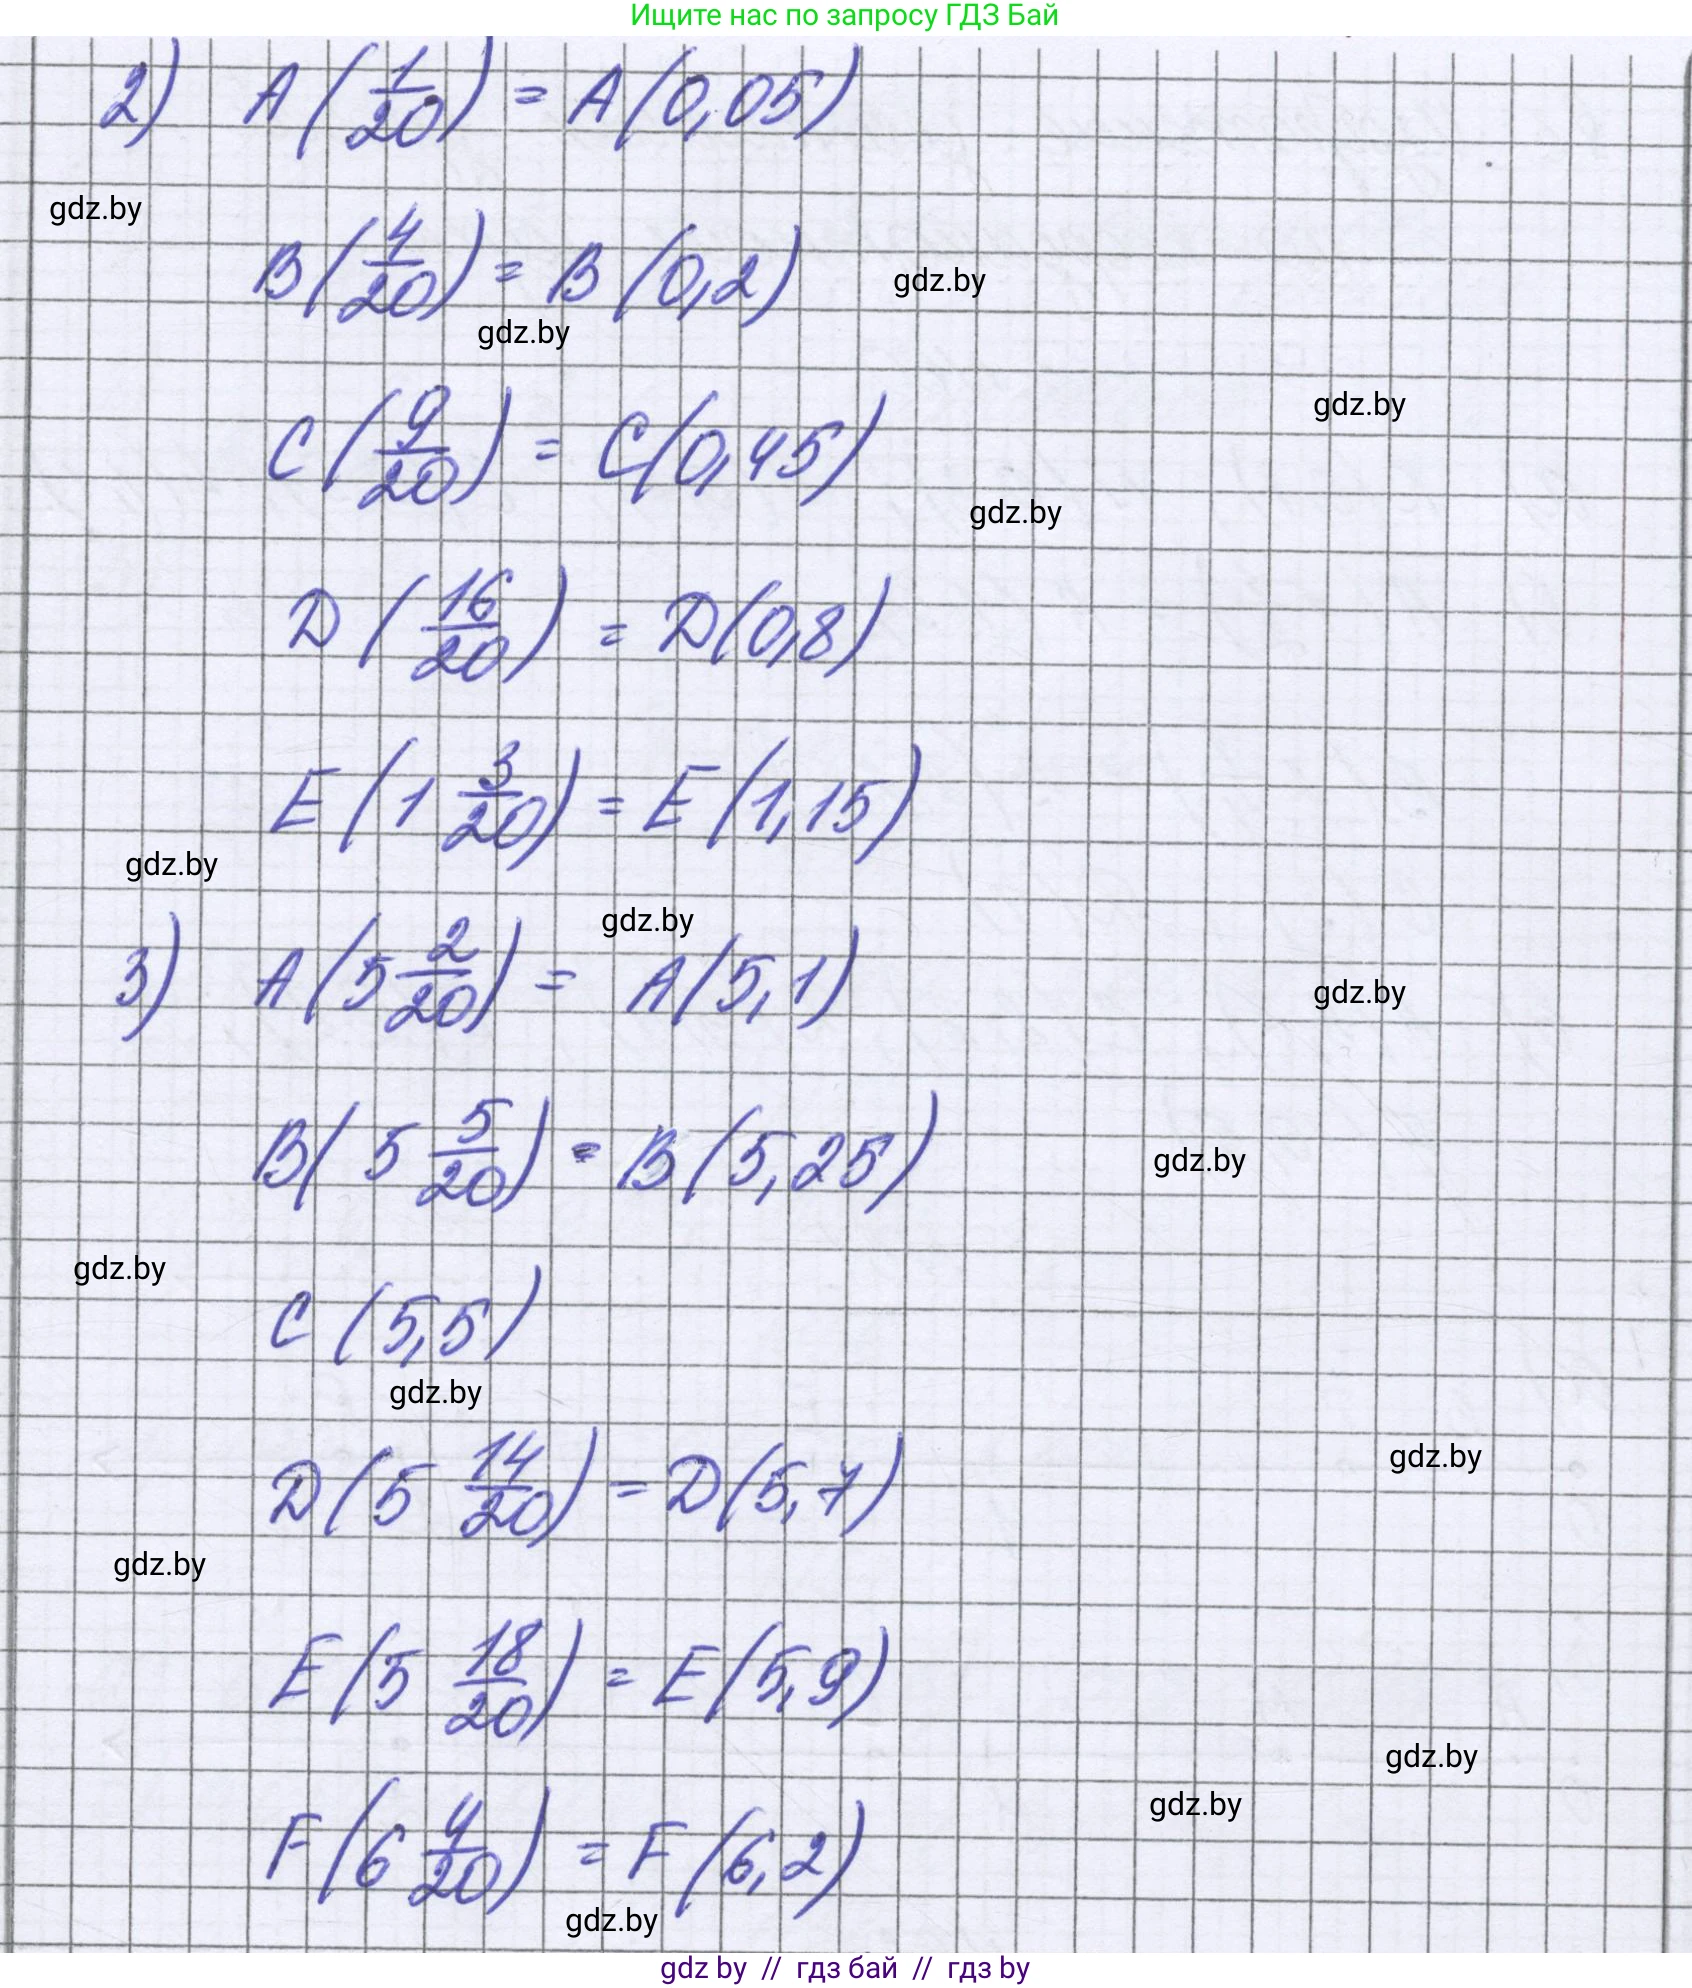 Ищите нас по запросу ГДЗ Бай
2) A(1/20) = A(0,05)
gdz.by
B(4/20) = B(0,2)
gdz.by
gdz.by
gdz.by
C(9/20) = C(0,45)
gdz.by
D(16/20) = D(0,8)
E(1 3/20) = E(1,15)
gdz.by
gdz.by
3) A(5 2/20) = A(5,1)
gdz.by
B(5 5/20) = B(5,25)
gdz.by
gdz.by
C(5,5)
gdz.by
gdz.by
D(5 14/20) = D(5,7)
gdz.by
E(5 18/20) = E(5,9)
gdz.by
gdz.by
F(6 4/20) = F(6,2)
gdz.by
gdz by // гдз бай // гдз by